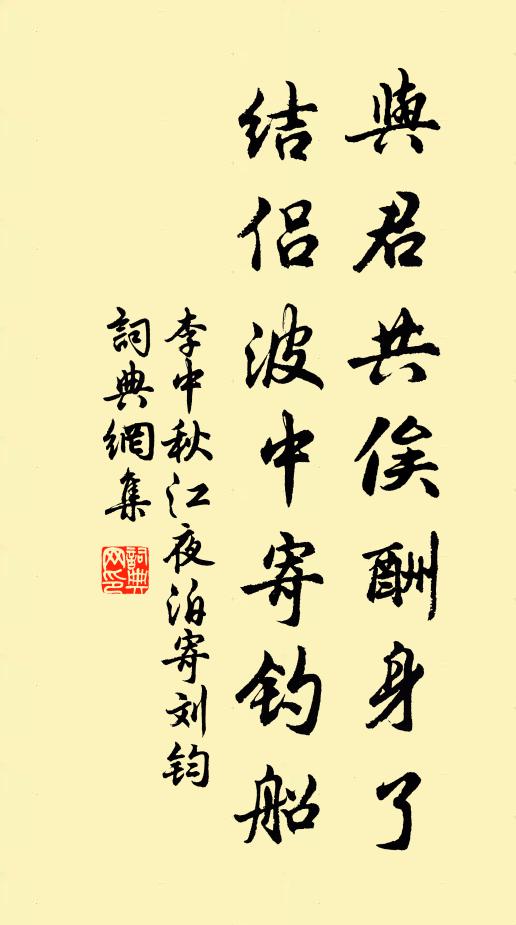 與君共俟酬身了
结侣波中寄钓船
李中秋江夜泊寄刘钧
詞典網集
詞典网印